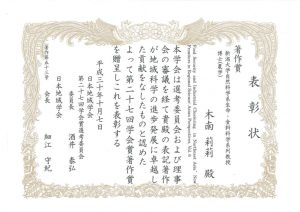 表彰状
著作賞
新潟大学自然科学系生命・食料科学系列教授
博士(農学)
木南莉莉 殿
Food Security and Industrial Clustering in Northeast Asia, New Frontiers in Regional Science: Asian Perspectives, Vol. 6.
本学会は選考委員会および理事
会の審議を経て貴殿の表記著作
が地域科学の進歩発展に卓越し
た貢献をなしたものと認めた
よって第二十七回学会賞著作賞
を贈呈しこれを表彰する
平成三十年十月七日
日本地域学会
第二十七回学会賞選考委員会
委員長 酒井泰弘
日本地域学会
会長 細江守紀